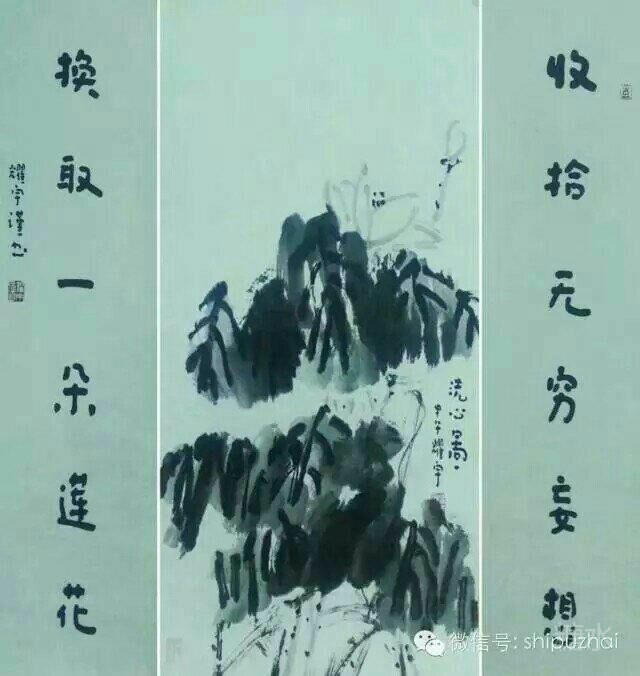 收拾无穷妄想
换取一朵莲花
耀宇谨书
洗心图
甲午耀宇
微信号: shipuzhai